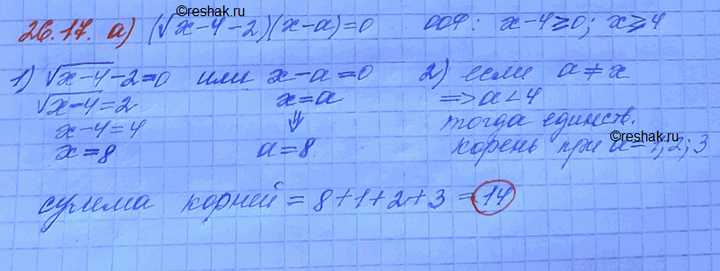 ©reshak.ru
26.17. а) (√x-4-2)(x-a)=0 ООФ: x-4⩾0; x⩾4
1) √x-4-2=0 или x-a=0 2) если a≠x
√x-4=2 x=a =>a<4
x-4=4 ⇓ тогда единств.
x=8 a=8 корень при a=1;2;3
©reshak.ru
сумма корней = 8+1+2+3 = 14